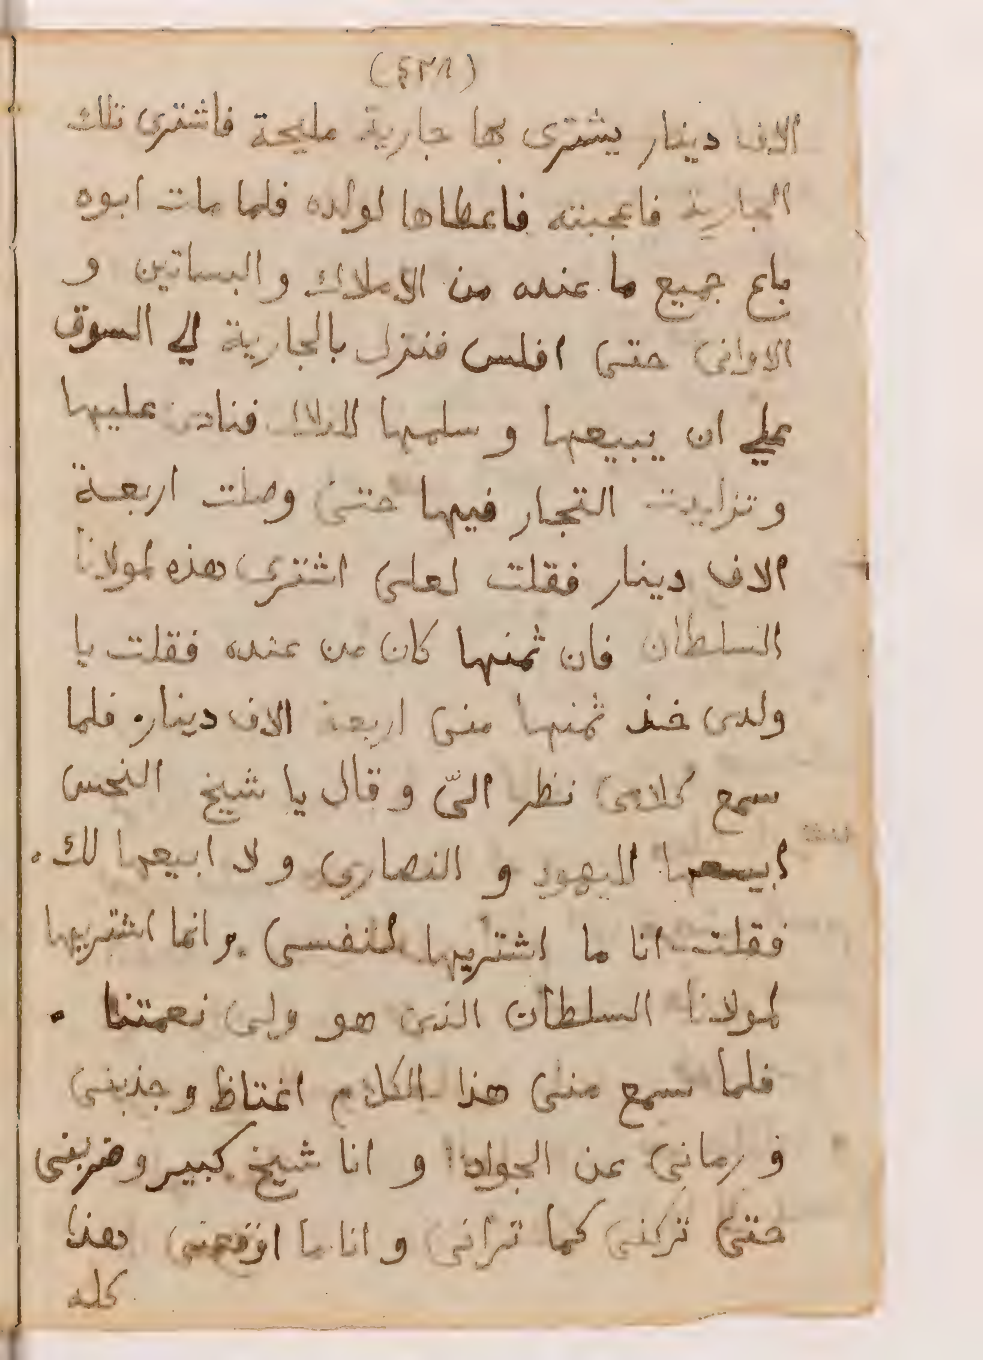 (٤٣٨)
الاف دينار يشترى بها جارية مليحة فاشترى تلك
الجارية فاعجبته فاعطاها لولده فلما مات ابوه
باع جميع ما عنده من الاملاك والبساتين و
الاوانى حتى افلس فنزل بالجارية الي السوق
علي ان يبيعها و سلمها للدلال فنادى عليها
و تزايدت التجار فيها حتى وصلت اربعة
الاف دينار فقلت لعلى اشترى هذه لمولانا
السلطان فان ثمنها كان من عنده فقلت يا
ولدى خذ ثمنها منى اربعة الاف دينار. فلما
سمع كلامى نظر الىّ و قال يا شيخ النحس
ابيعها لليهود و النصارى و لا ابيعها لك.
فقلت انا ما اشتريها لنفسى. وانما اشتريها
لمولانا السلطان الذى هو ولى نعمتنا .
فلما سمع منى هذا الكلام اغتاظ و جذبنى
و رمانى عن الجواد و انا شيخ كبير و ضربنى
حتى تركنى كما ترانى و انا ما اوقعنى هذا
كله